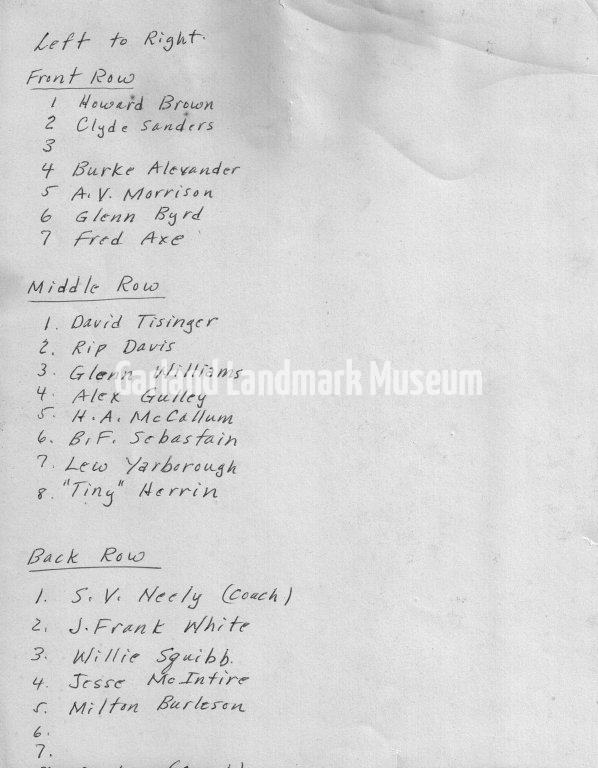 Left to Right.
Front Row
1 Howard Brown
2 Clyde Sanders
3
4 Burke Alexander
5 A.V. Morrison
6 Glenn Byrd
7 Fred Axe
Middle Row
1. David Tisinger
2. Rip Davis
3. Glenn Williams
Garland Landmark Museum
4. Alex Gulley
5. H.A. McCallum
6. B.F. Sebastain
7. Lew Yarborough
8. "Tiny" Herrin
Back Row
1. S.V. Neely (Coach)
2. J. Frank White
3. Willie Squibb.
4. Jesse McIntire
5. Milton Burleson
6.
7.